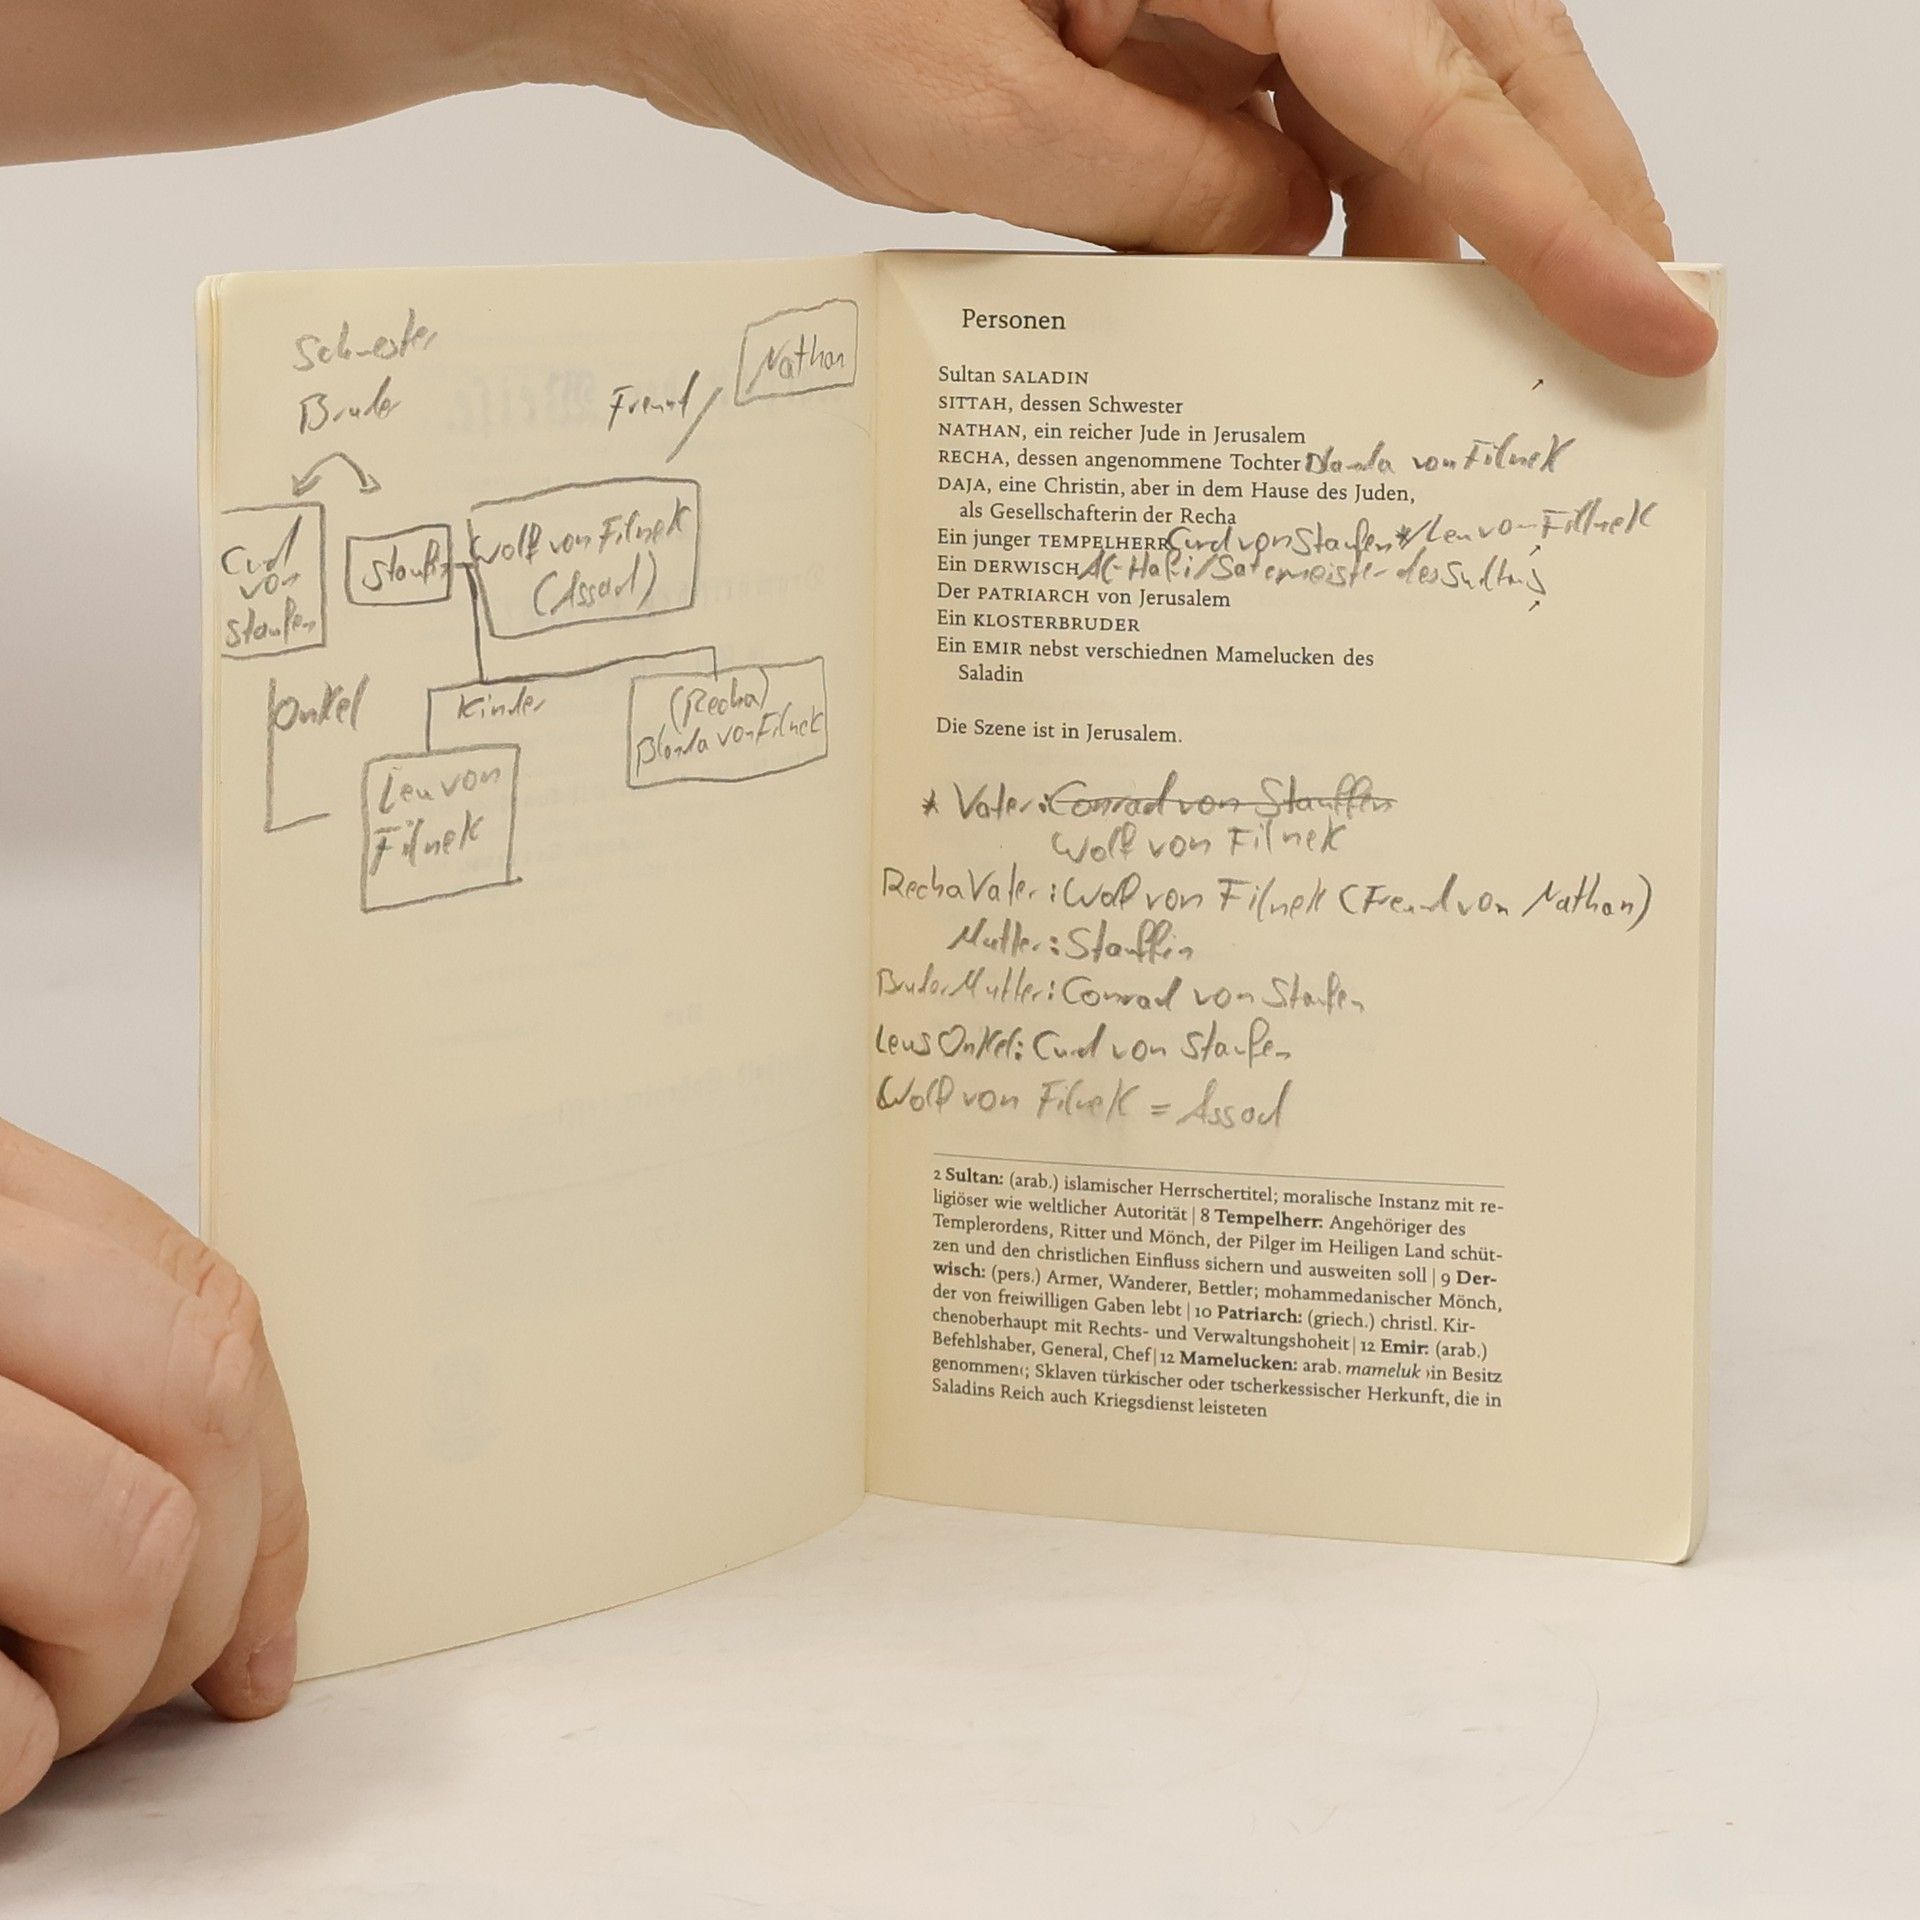 Schwester
Bruder
Freund
Nathan
Curd
von
Staufen
Stauffin
Wolf von Filnek
(Assad)
Onkel
Kinder
(Recha)
Blanda von Filnek
Leu von
Filnek
Personen
Sultan SALADIN
SITTAH, dessen Schwester
NATHAN, ein reicher Jude in Jerusalem
RECHA, dessen angenommene Tochter Blanda von Filnek
DAJA, eine Christin, aber in dem Hause des Juden,
als Gesellschafterin der Recha
Ein junger TEMPELHERR Curd von Staufen*/Leu von Filnek
Ein DERWISCH Al-Hafi/ des Sultans
Der PATRIARCH von Jerusalem
Ein KLOSTERBRUDER
Ein EMIR nebst verschiednen Mamelucken des
Saladin
Die Szene ist in Jerusalem.
* Vater: Conrad von Stauffen
Wolf von Filnek
Recha Vater: Wolf von Filnek (Freund von Nathan)
Mutter: Stauffin
Bruder Mutter: Conrad von Staufen
Leus Onkel: Curd von Staufen
Wolf von Filnek = Assad
2 Sultan: (arab.) islamischer Herrschertitel; moralische Instanz mit re-
ligiöser wie weltlicher Autorität | 8 Tempelherr: Angehöriger des
Templerordens, Ritter und Mönch, der Pilger im Heiligen Land schüt-
zen und den christlichen Einfluss sichern und ausweiten soll | 9 Der-
wisch: (pers.) Armer, Wanderer, Bettler; mohammedanischer Mönch,
der von freiwilligen Gaben lebt | 10 Patriarch: (griech.) christl. Kir-
chenoberhaupt mit Rechts- und Verwaltungshoheit | 12 Emir: (arab.)
Befehlshaber, General, Chef | 12 Mamelucken: arab. mameluk ›in Besitz
genommen‹; Sklaven türkischer oder tscherkessischer Herkunft, die in
Saladins Reich auch Kriegsdienst leisteten